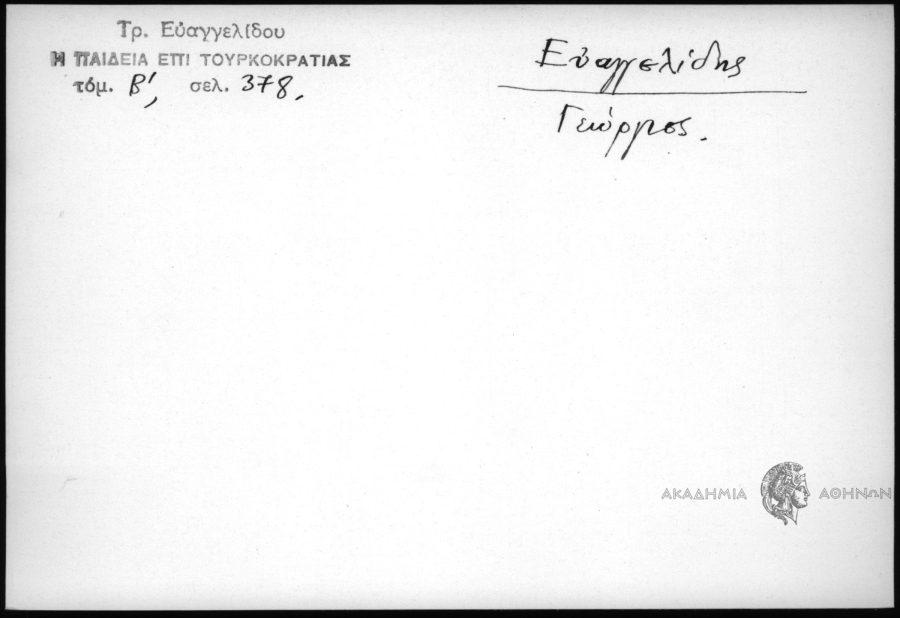 Τρ. Εὐαγγελίδου
Η ΠΑΙΔΕΙΑ ΕΠΙ ΤΟΥΡΚΟΚΡΑΤΙΑΣ
τόμ. Β', σελ. 378,
Εὐαγγελίδης
Γεώργιος.
ΑΚΑΔΗΜΙΑ ΑΘΗΝΩΝ